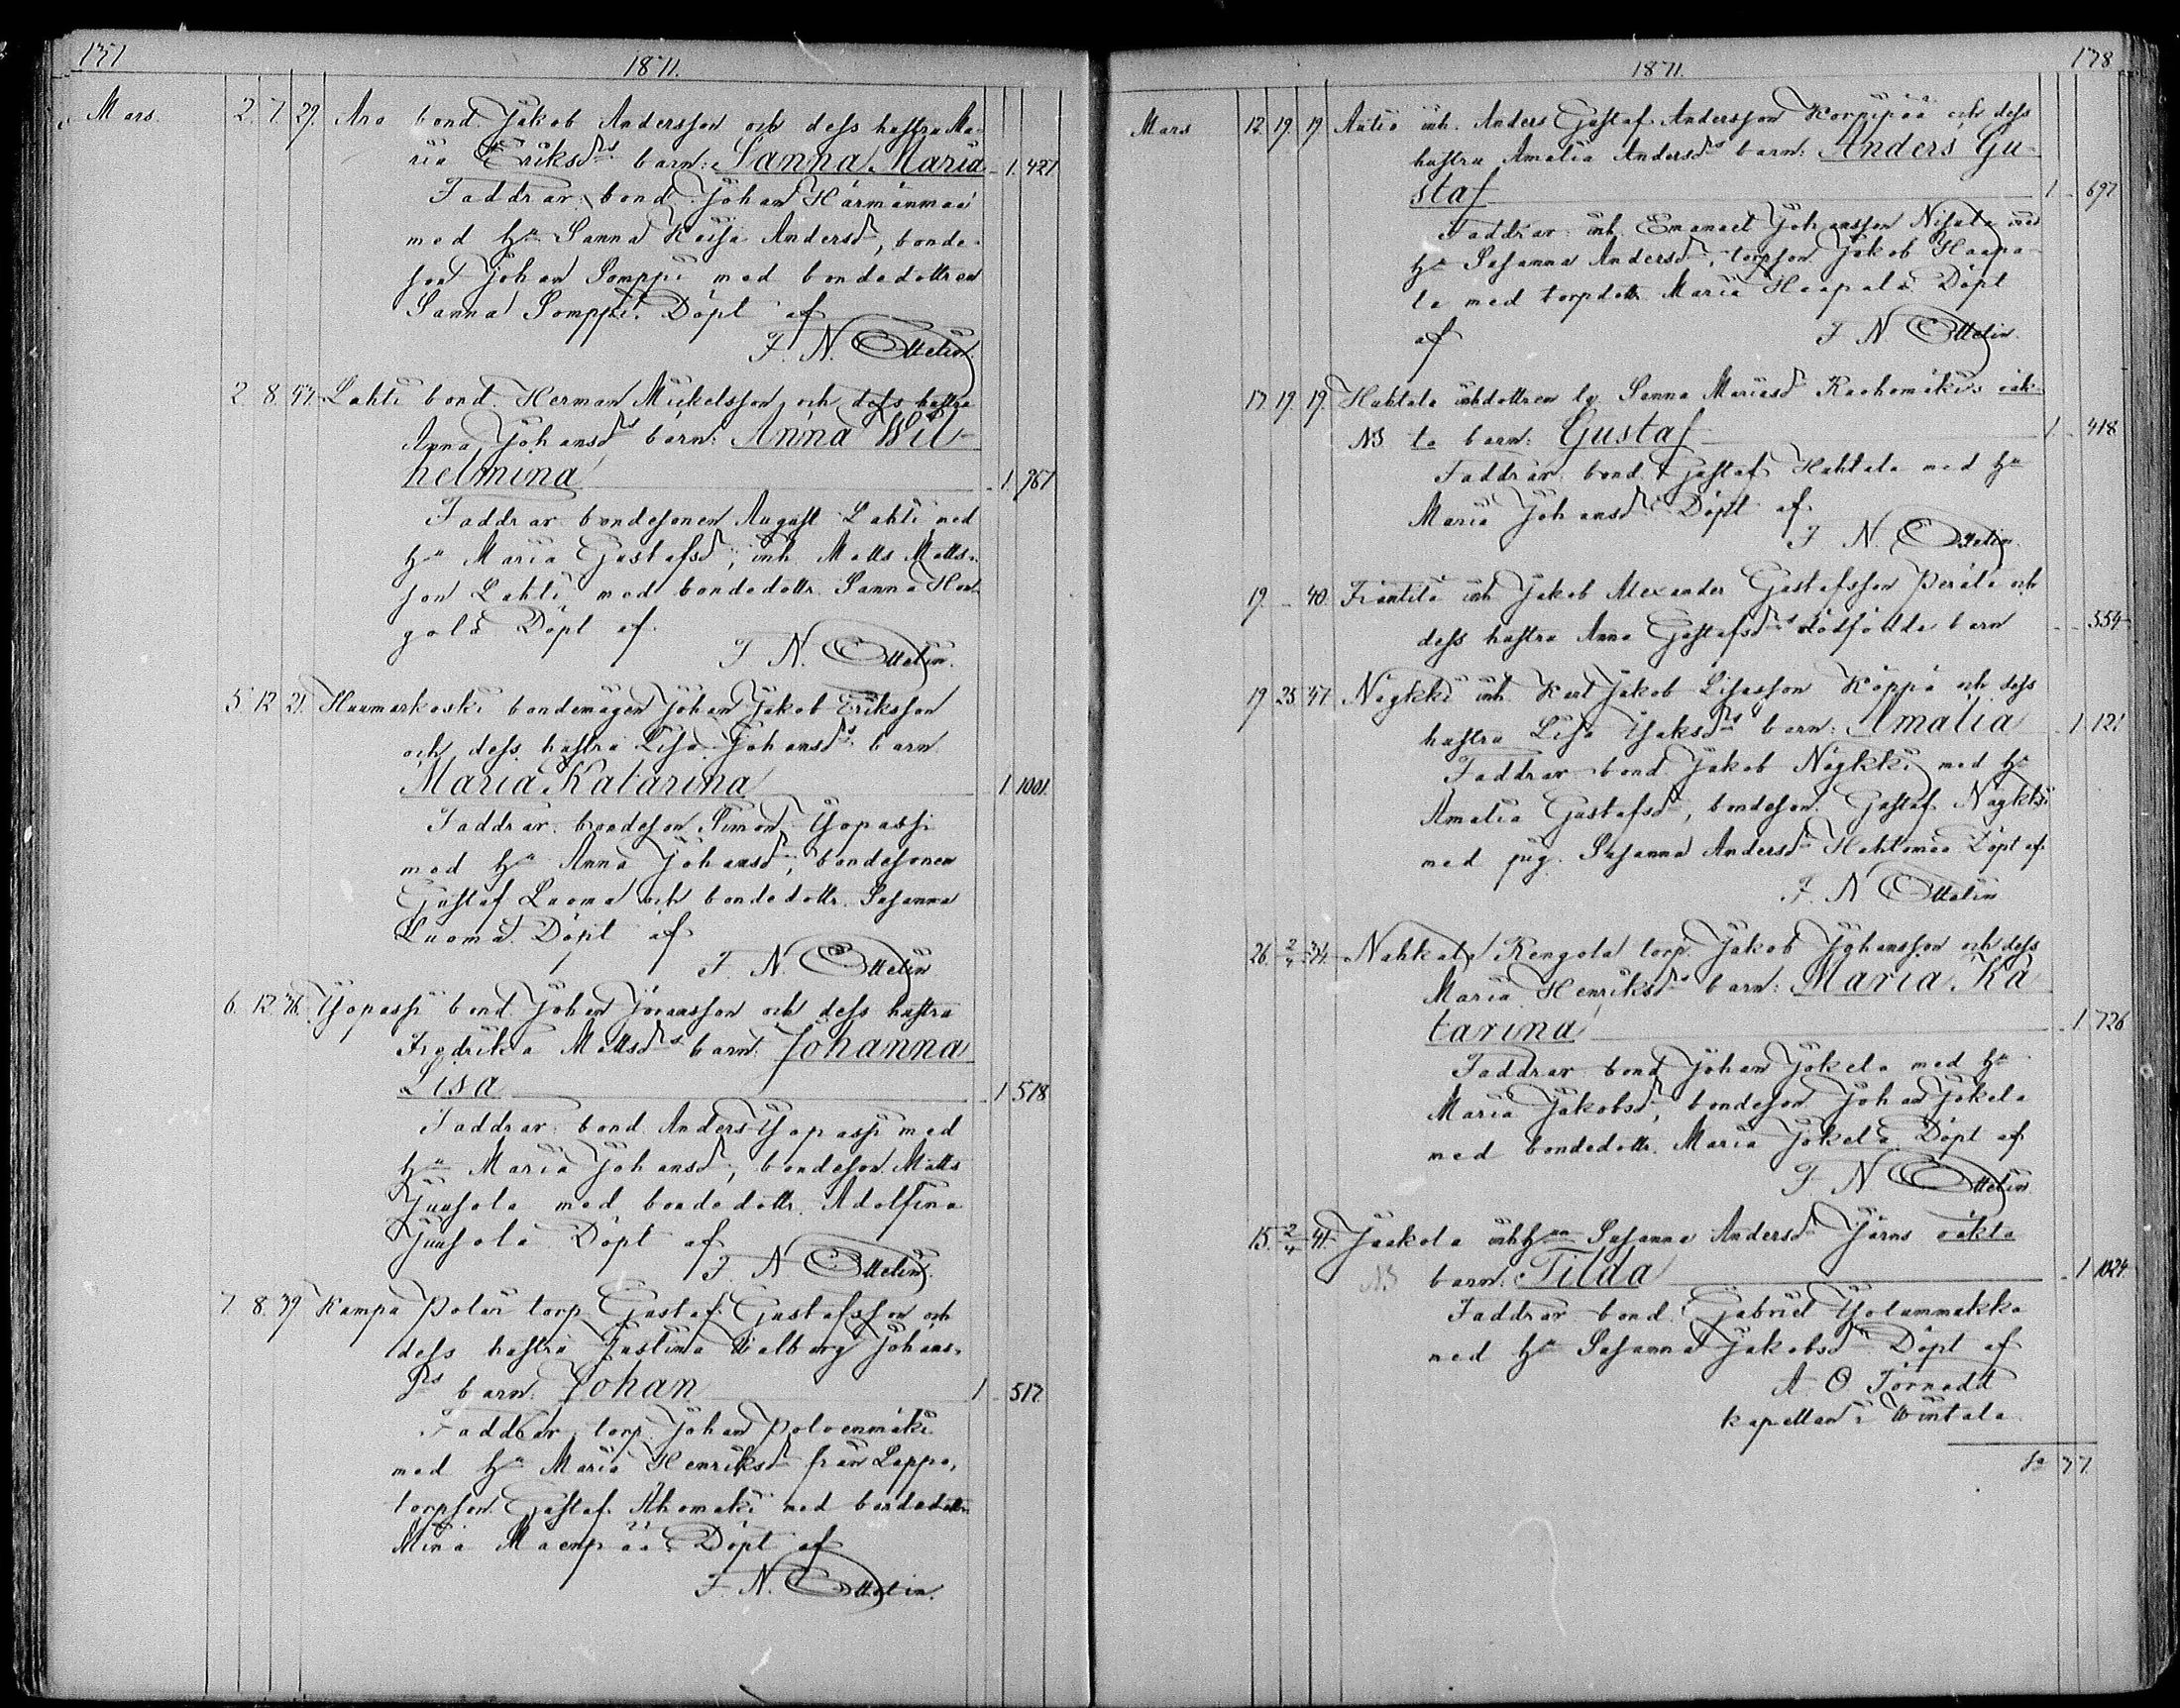 137
1871.
Mars. 2. 7. 29. Aro bond. Jakob Andersson och dess hustru Ma-
ria Eriksdrs barn: Sanna Maria 1. 427
Faddrar bond. Johan Härmänmaa
med hu Sanna Kaisa Andersdr, bonde-
son Johan Somppi med bondedottren
Sanna Somppi. Döpt af
F. N. Ottelin.
2. 8. Lahti bond. Herman Mickelsson och dess hustru
Anna Johansdrs barn: Anna Wil-
helmina 1. 967
Faddrar bondesonen August Lahti med
hu Maria Gustafsdr, inh. Matts Matts-
son Lahti med bondedottr. Sanna Han-
gola. Döpt af.
F. N. Ottelin.
5. 12. 21. Haumarkoski bondemågen Johan Jakob Eriksson
och dess hustru Lisa Johansdrs barn
Maria Katarina 1. 1001.
Faddrar: bondeson Simon Yöpassi
med hu Anna Johansdr, bondesonen
Gustaf Luoma och bondedottr. Susanna
Luoma. Döpt af
F. N. Ottelin
6. 12. 36. Yöpassi bond. Johan Jönasson och dess hustru
Fredrika Mattsdrs barn: Johanna
Lisa 1. 518
Faddrar: bond. Anders Yöpassi med
hu Maria Johansdr, bondeson Matts
Juusola med bondedottr. Adolfina
Juusola. Döpt af
F. N. Ottelin.
7. 8. 39. Kampa Polari torp. Gustaf Gustafsson och
dess hustru Justina Walborg Johans-
drs barn: Johan 1 517.
Faddrar torp. Johan Polvenmäki
med hu Maria Henriksdr från Lappo,
torpson. Gustaf Ahomäki med bondedottr.
Mina Mäenpää. Döpt af
F. N. Ottelin.
1871. 138
Mars 12. 19. 19. Antio inh. Anders Gustaf Andersson Korpipää och dess
hustru Amalia Andersdrs barn: Anders Gu-
staf 1 697
Faddrar: inh. Emanuel Johansson Nisula med
hu Susanna Andersdr, torpson Jakob Haapa-
la med torpdottr. Maria Haapala. Döpt
af F. N. Ottelin.
17. 19. 19. Huhtala inhdottren lg Sanna Mariasdr Ruohomäkis oäk-
NB ta barn: Gustaf 1 418
Faddrar: bond. Gustaf Huhtala med hu
Maria Johansdr. Döpt af
F. N. Ottelin.
19. 40. Frantilä inh Jakob Alexander Gustafsson Perälä och
dess hustru Anna Gustafsdrs dödfödda barn 554
19. 25. 47. Nägkki inh Karl Jakob Lisasson Köppä och dess
hustru Lisa Isaksdrs barn: Amalia 1. 121
Faddrar bond. Jakob Nägkki med hu
Amalia Gustafsdr, bondeson. Gustaf Nägkki
med pig. Susanna Andersdr Huhtamaa Döpt af
F. N. Ottelin
26. 2/4 34. Nahkala Rengola torp. Jakob Johansson och dess
Maria Henriksdrs barn: Maria Ka
tarina 1 726
Faddrar bond. Johan Jokela med hu
Maria Jakobsdr, bondeson Johan Jokela
med bondedottr. Maria Jokela. Döpt af
F. N. Ottelin.
15. 2/4 41. Jaakola inhhan Susanna Andersdr Järns oäkta
NB barn: Tilda 1 1024
Faddrar bond. Gabriel Ylolammakko
med hu Susanna Jakobsdr. Döpt af
A. O. Törnudd
kapellan i Wintala
Sa 77.